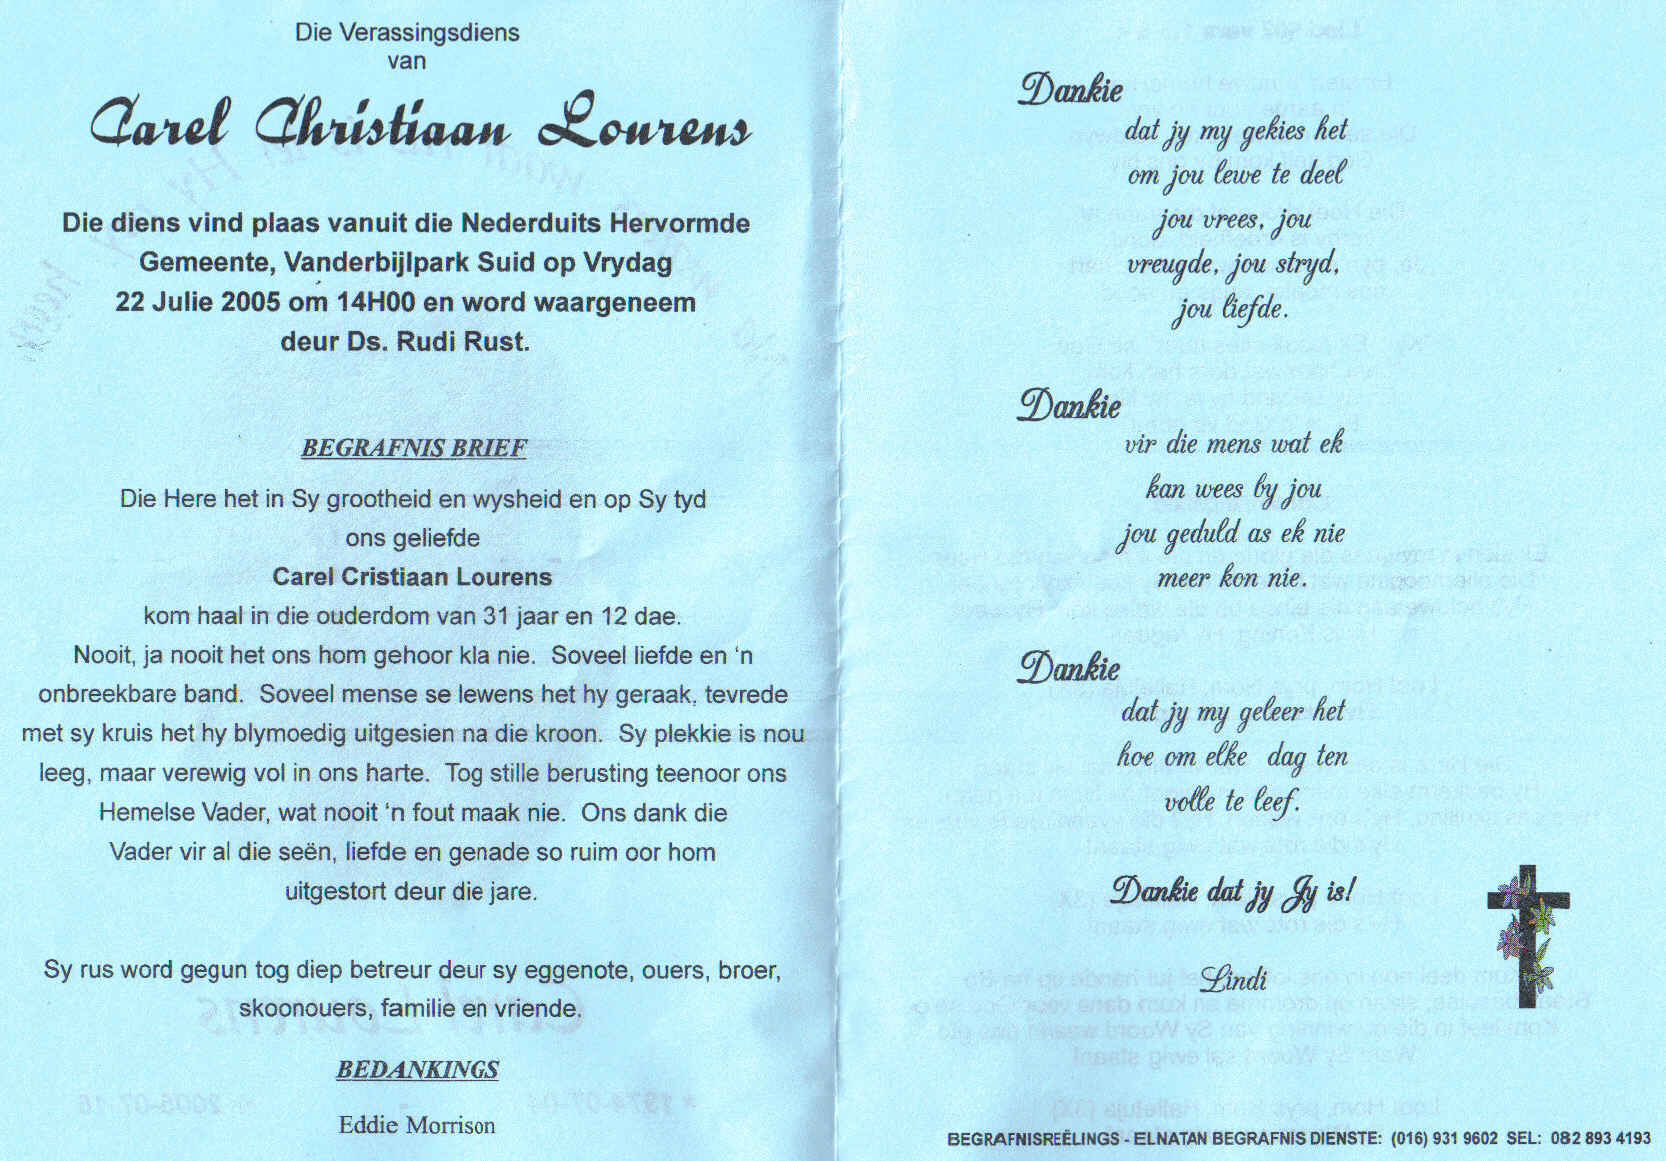 Die Verassingsdiens
van
Carel Christiaan Lourens
Die diens vind plaas vanuit die Nederduits Hervormde
Gemeente, Vanderbijlpark Suid op Vrydag
22 Julie 2005 om 14H00 en word waargeneem
deur Ds. Rudi Rust.
BEGRAFNIS BRIEF
Die Here het in Sy grootheid en wysheid en op Sy tyd
ons geliefde
Carel Cristiaan Lourens
kom haal in die ouderdom van 31 jaar en 12 dae.
Nooit, ja nooit het ons hom gehoor kla nie.  Soveel liefde en 'n
onbreekbare band.  Soveel mense se lewens het hy geraak, tevrede
met sy kruis het hy blymoedig uitgesien na die kroon.  Sy plekkie is nou
leeg, maar verewig vol in ons harte.  Tog stille berusting teenoor ons
Hemelse Vader, wat nooit 'n fout maak nie.  Ons dank die
Vader vir al die seën, liefde en genade so ruim oor hom
uitgestort deur die jare.
Sy rus word gegun tog diep betreur deur sy eggenote, ouers, broer,
skoonouers, familie en vriende.
BEDANKINGS
Eddie Morrison
Dankie
dat jy my gekies het
om jou lewe te deel
jou vrees, jou
vreugde, jou stryd,
jou liefde.
Dankie
vir die mens wat ek
kan wees by jou
jou geduld as ek nie
meer kon nie.
Dankie
dat jy my geleer het
hoe om elke dag ten
volle te leef.
Dankie dat jy Jy is!
Lindi
BEGRAFNISREËLINGS - ELNATAN BEGRAFNIS DIENSTE:  (016) 931 9602  SEL:  082 893 4193